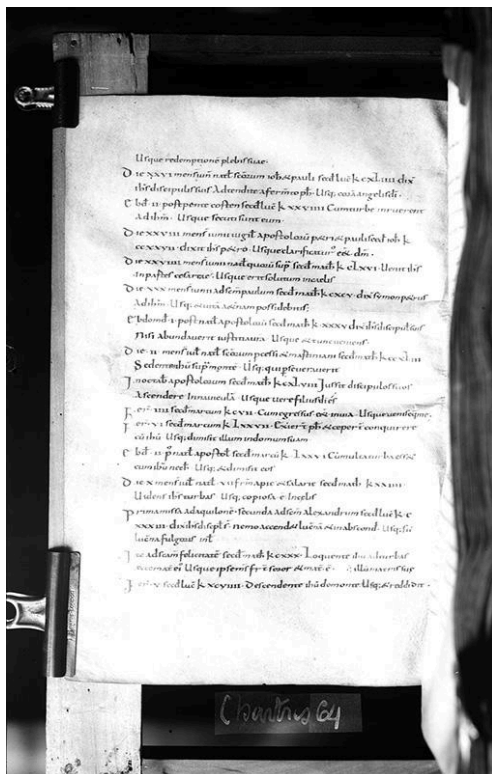 Usque redemptionē plebis suae·
Die XXVI mensiunii nat scōrum ioh & pauli secd luc k CXLIIII dix
ihs discipulis suis Adtendite a fermto ph· Usq; corā angelis di·
Ebd· II· post pente costen secd luc k XXXVIIII Cum turbe inruerent
ad ihm· Usque secuti sunt eum·
Die XXVIII mens iunii uigil apostoloru petri & pauli secd ioh k
CCXXVII· dixit ihs petro· Usque clarificatur est dm·
Die XXVIIII mensiunii nat quo sup secd math k CLXVI· Uenit ihs
in partes cesareae· Usque erit solutum in caelis
Die XXX mensiunii ad scm paulum secd math k CXCV· dix simon petrus
Ad ihm· Usq; & uitā aeternam possidebitis;
Ebdomd· I· post nat apostoloru secd math k· XXXV dix ihs discipulis suis
Nisi abundauerit iustitia ura· Usque & tunc ueniens·
Die· II· mens iul nat scōrum processi & martiniani secd math k CCXLIII
Sedente ihu sup monte· Usq; qui pseuerauerit
In octab apostolorum secd math k CXLVIII Jussit discipulos suos
Ascendere in nauicula· Usque uere filius di es
Fer· IIII secd marcum k CVII· Cum egressus esset in uia· Usque
Fer· VI secd marcum k LXXVII· Exierunt ph & ceperunt conquirere
cū ihu Usq; dimisit illum in domum suam
Ebd· II· p nat apostol secd marcū k· LXXVI Cum multa turba esset
cum ihu nec h· Usq; & dimisit eos
Die X mens iul nat· VII frm apic & salarie secd math k XXIIII·
Uidens ihs turbas Usq; copiosa ē in celis
Prima missa ad aquilone· secunda ad scm alexandrum secd luc k· C
XXXIII· dix ihs discpls· nemo accendet lucnā & in abscond· Usq; sic
lucerna fulguris inl
Die ad scam felicitatē secd math k CXXX· Loquente ihu ad turbas
ecce mat ei Usque ipse ms fr & soror & mat· ē·
Fer· V secd luc k XCVIIII· Descendente ihū de monte Usq; & reddidit·
Chartres 64